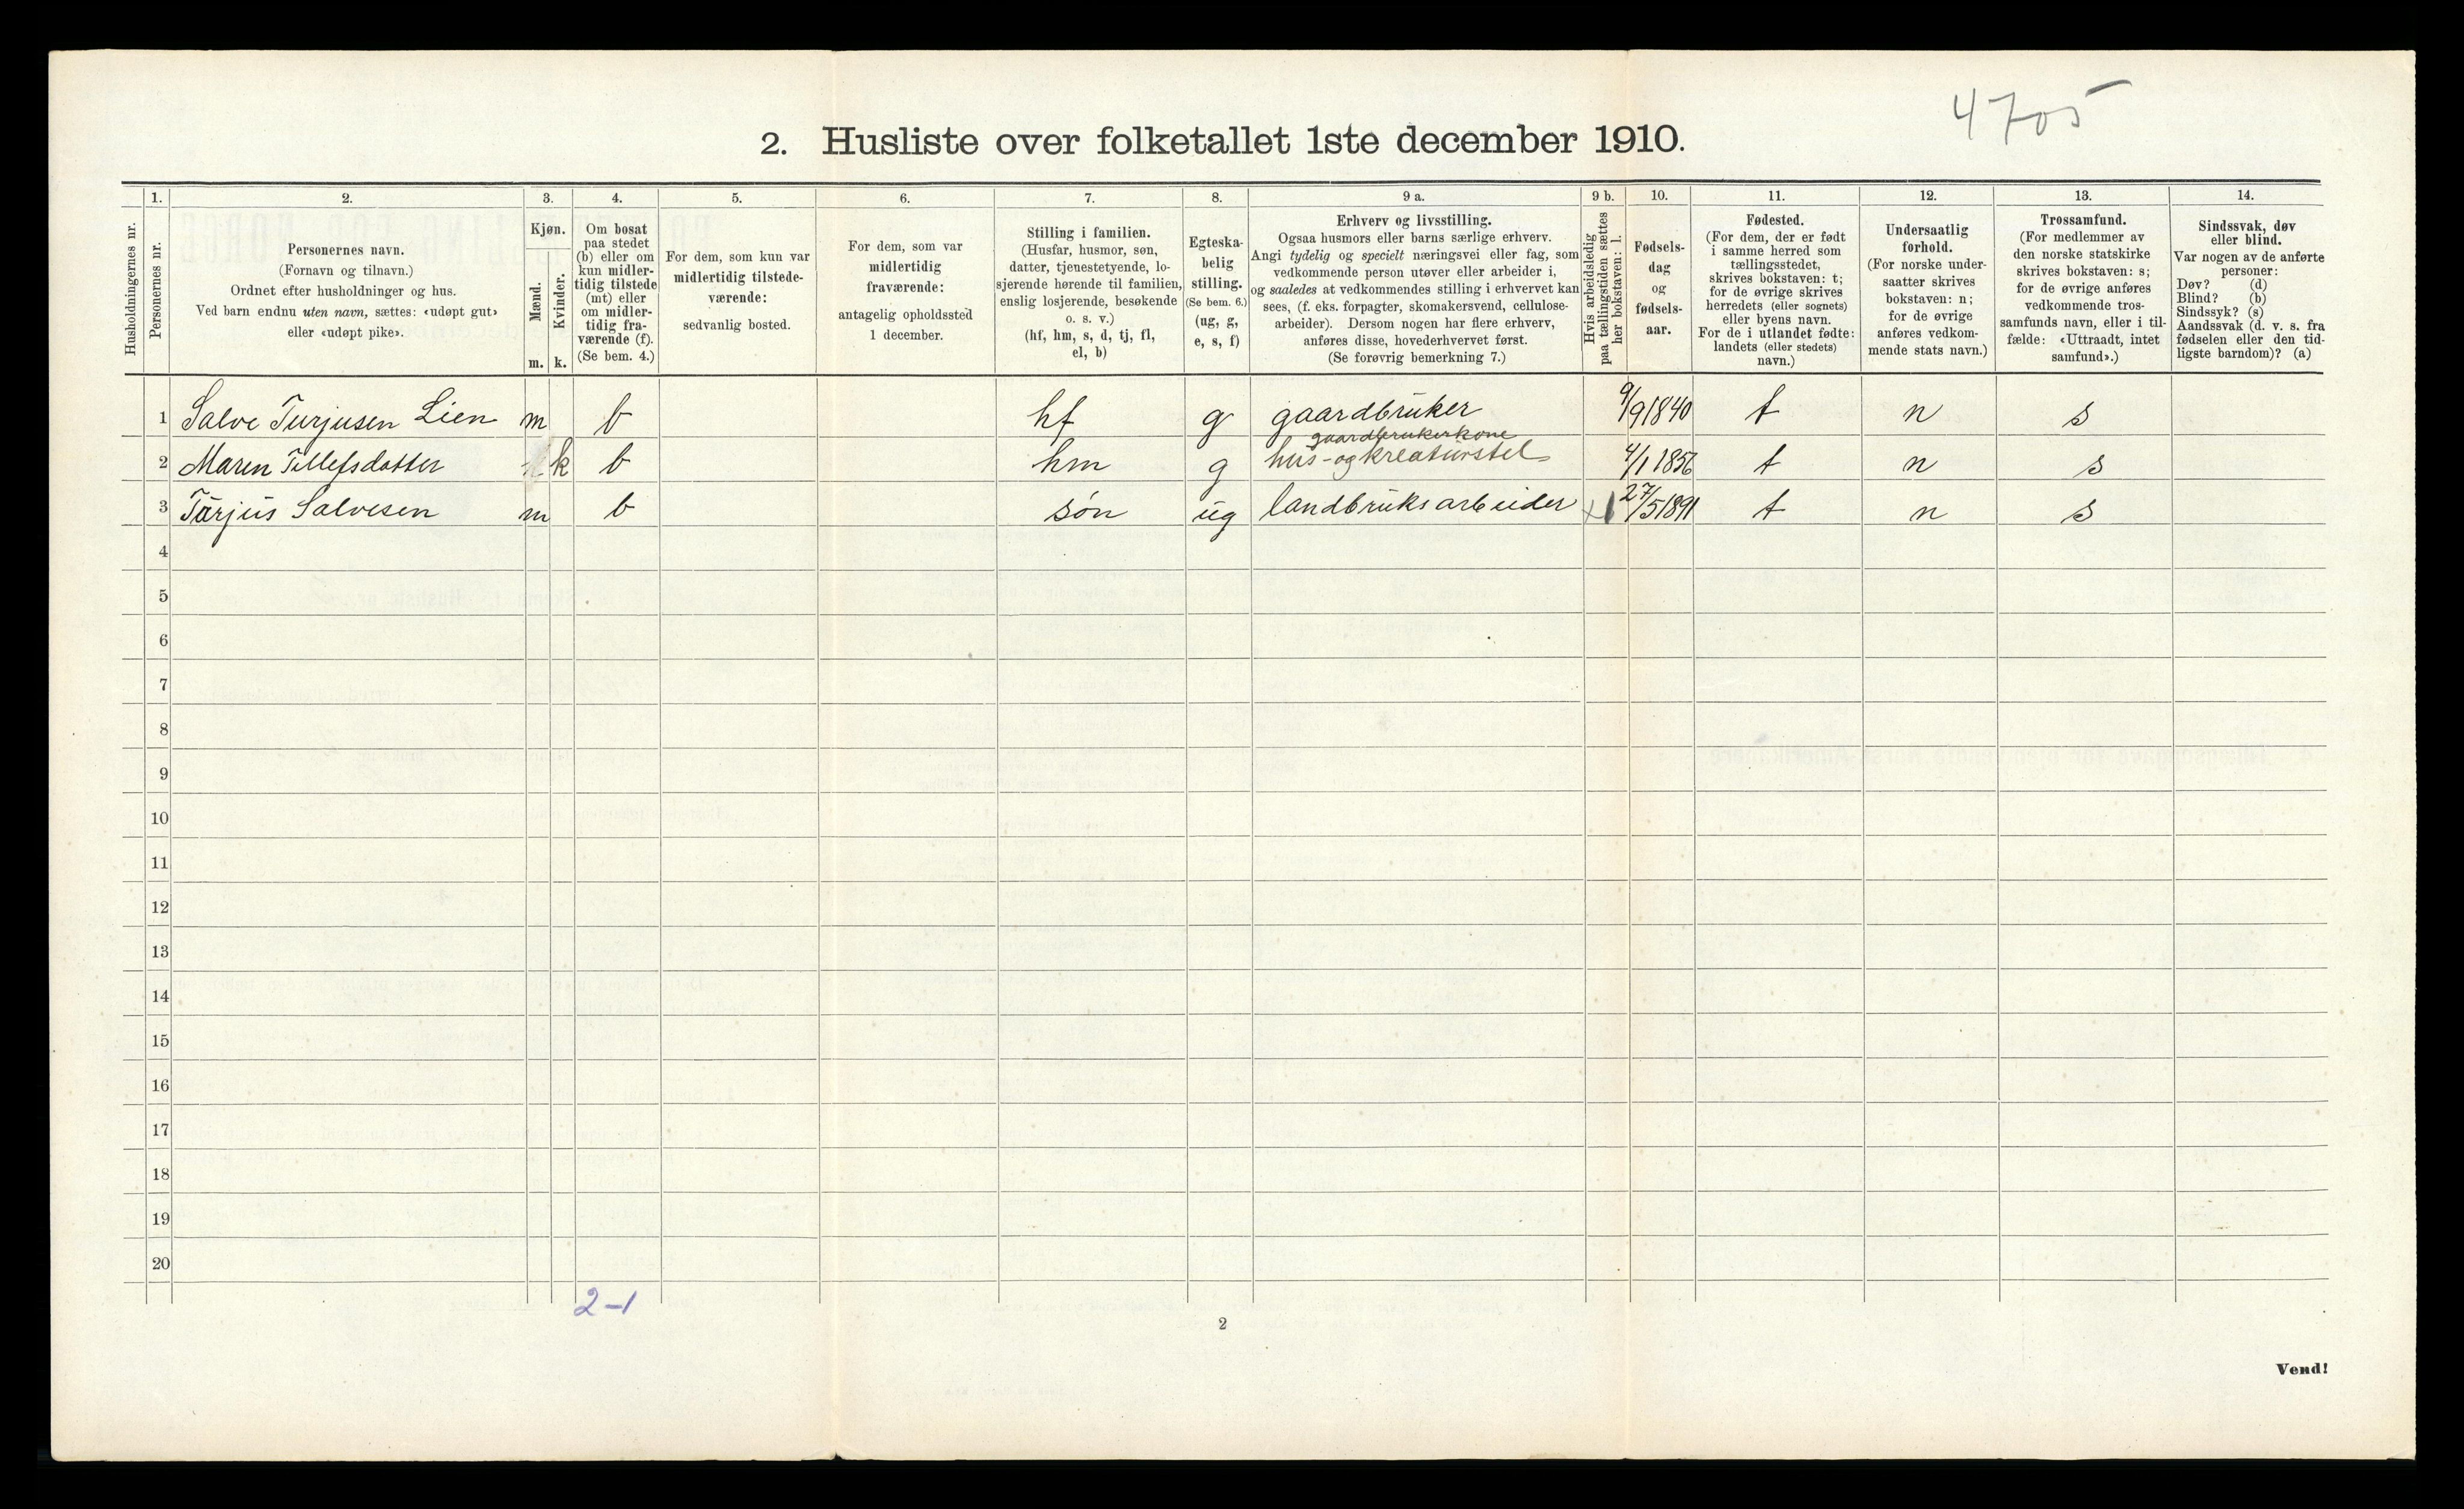 4705
2. Husliste over folketallet 1ste december 1910.
1. 2. 3. 4. 5. 6. 7. 8. 9 a. 9 b. 10. 11. 12. 13. 14.
Husholdningernes nr.
Personernes nr.
Personernes navn.
(Fornavn og tilnavn.)
Ordnet efter husholdninger og hus.
Ved barn endnu uten navn, sættes: «udøpt gut»
eller «udøpt pike».
Kjøn.
Mænd.
Kvinder.
m. k.
Om bosat
paa stedet
(b) eller om
kun midler-
tidig tilstede
(mt) eller
om midler-
tidig fra-
værende (f).
(Se bem. 4.)
For dem, som kun var
midlertidig tilstede-
værende:
sedvanlig bosted.
For dem, som var
midlertidig
fraværende:
antagelig opholdssted
1 december.
Stilling i familien.
(Husfar, husmor, søn,
datter, tjenestetyende, lo-
sjerende hørende til familien,
enslig losjerende, besøkende
o. s. v.)
(hf, hm, s, d, tj, fl,
el, b)
Egteska-
belig
stilling.
(Se bem. 6.)
(ug, g,
e, s, f)
Erhverv og livsstilling.
Ogsaa husmors eller barns særlige erhverv.
Angi tydelig og specielt næringsvei eller fag, som
vedkommende person utøver eller arbeider i,
og saaledes at vedkommendes stilling i erhvervet kan
sees, (f. eks. forpagter, skomakersvend, cellulose-
arbeider). Dersom nogen har flere erhverv,
anføres disse, hovederhvervet først.
(Se forøvrig bemerkning 7.)
Hvis arbeidsledig
paa tællingstiden sættes
her bokstaven: l.
Fødsels-
dag
og
fødsels-
aar.
Fødested.
(For dem, der er født
i samme herred som
tællingsstedet,
skrives bokstaven: t;
for de øvrige skrives
herredets (eller sognets)
eller byens navn.
For de i utlandet fødte:
landets (eller stedets)
navn.)
Undersaatlig
forhold.
(For norske under-
saatter skrives
bokstaven: n;
for de øvrige
anføres vedkom-
mende stats navn.)
Trossamfund.
(For medlemmer av
den norske statskirke
skrives bokstaven: s;
for de øvrige anføres
vedkommende tros-
samfunds navn, eller i til-
fælde: «Uttraadt, intet
samfund».)
Sindssvak, døv
eller blind.
Var nogen av de anførte
personer:
Døv? (d)
Blind? (b)
Sindssyk? (s)
Aandssvak (d. v. s. fra
fødselen eller den tid-
ligste barndom)? (a)
1 Salve Turjusen Lien m b hf g gaardbruker 9/9 1840 t n s
gaardbrukerkone
2 Maren Tellefsdatter k b hm g hus- og kreaturstel 4/1 1856 t n s
3 Tarjus Salvesen m b søn ug landbruksarbeider 27/5 1891 t n s
4
5
6
7
8
9
10
11
12
13
14
15
16
17
18
19
20
2-1
2
Vend!